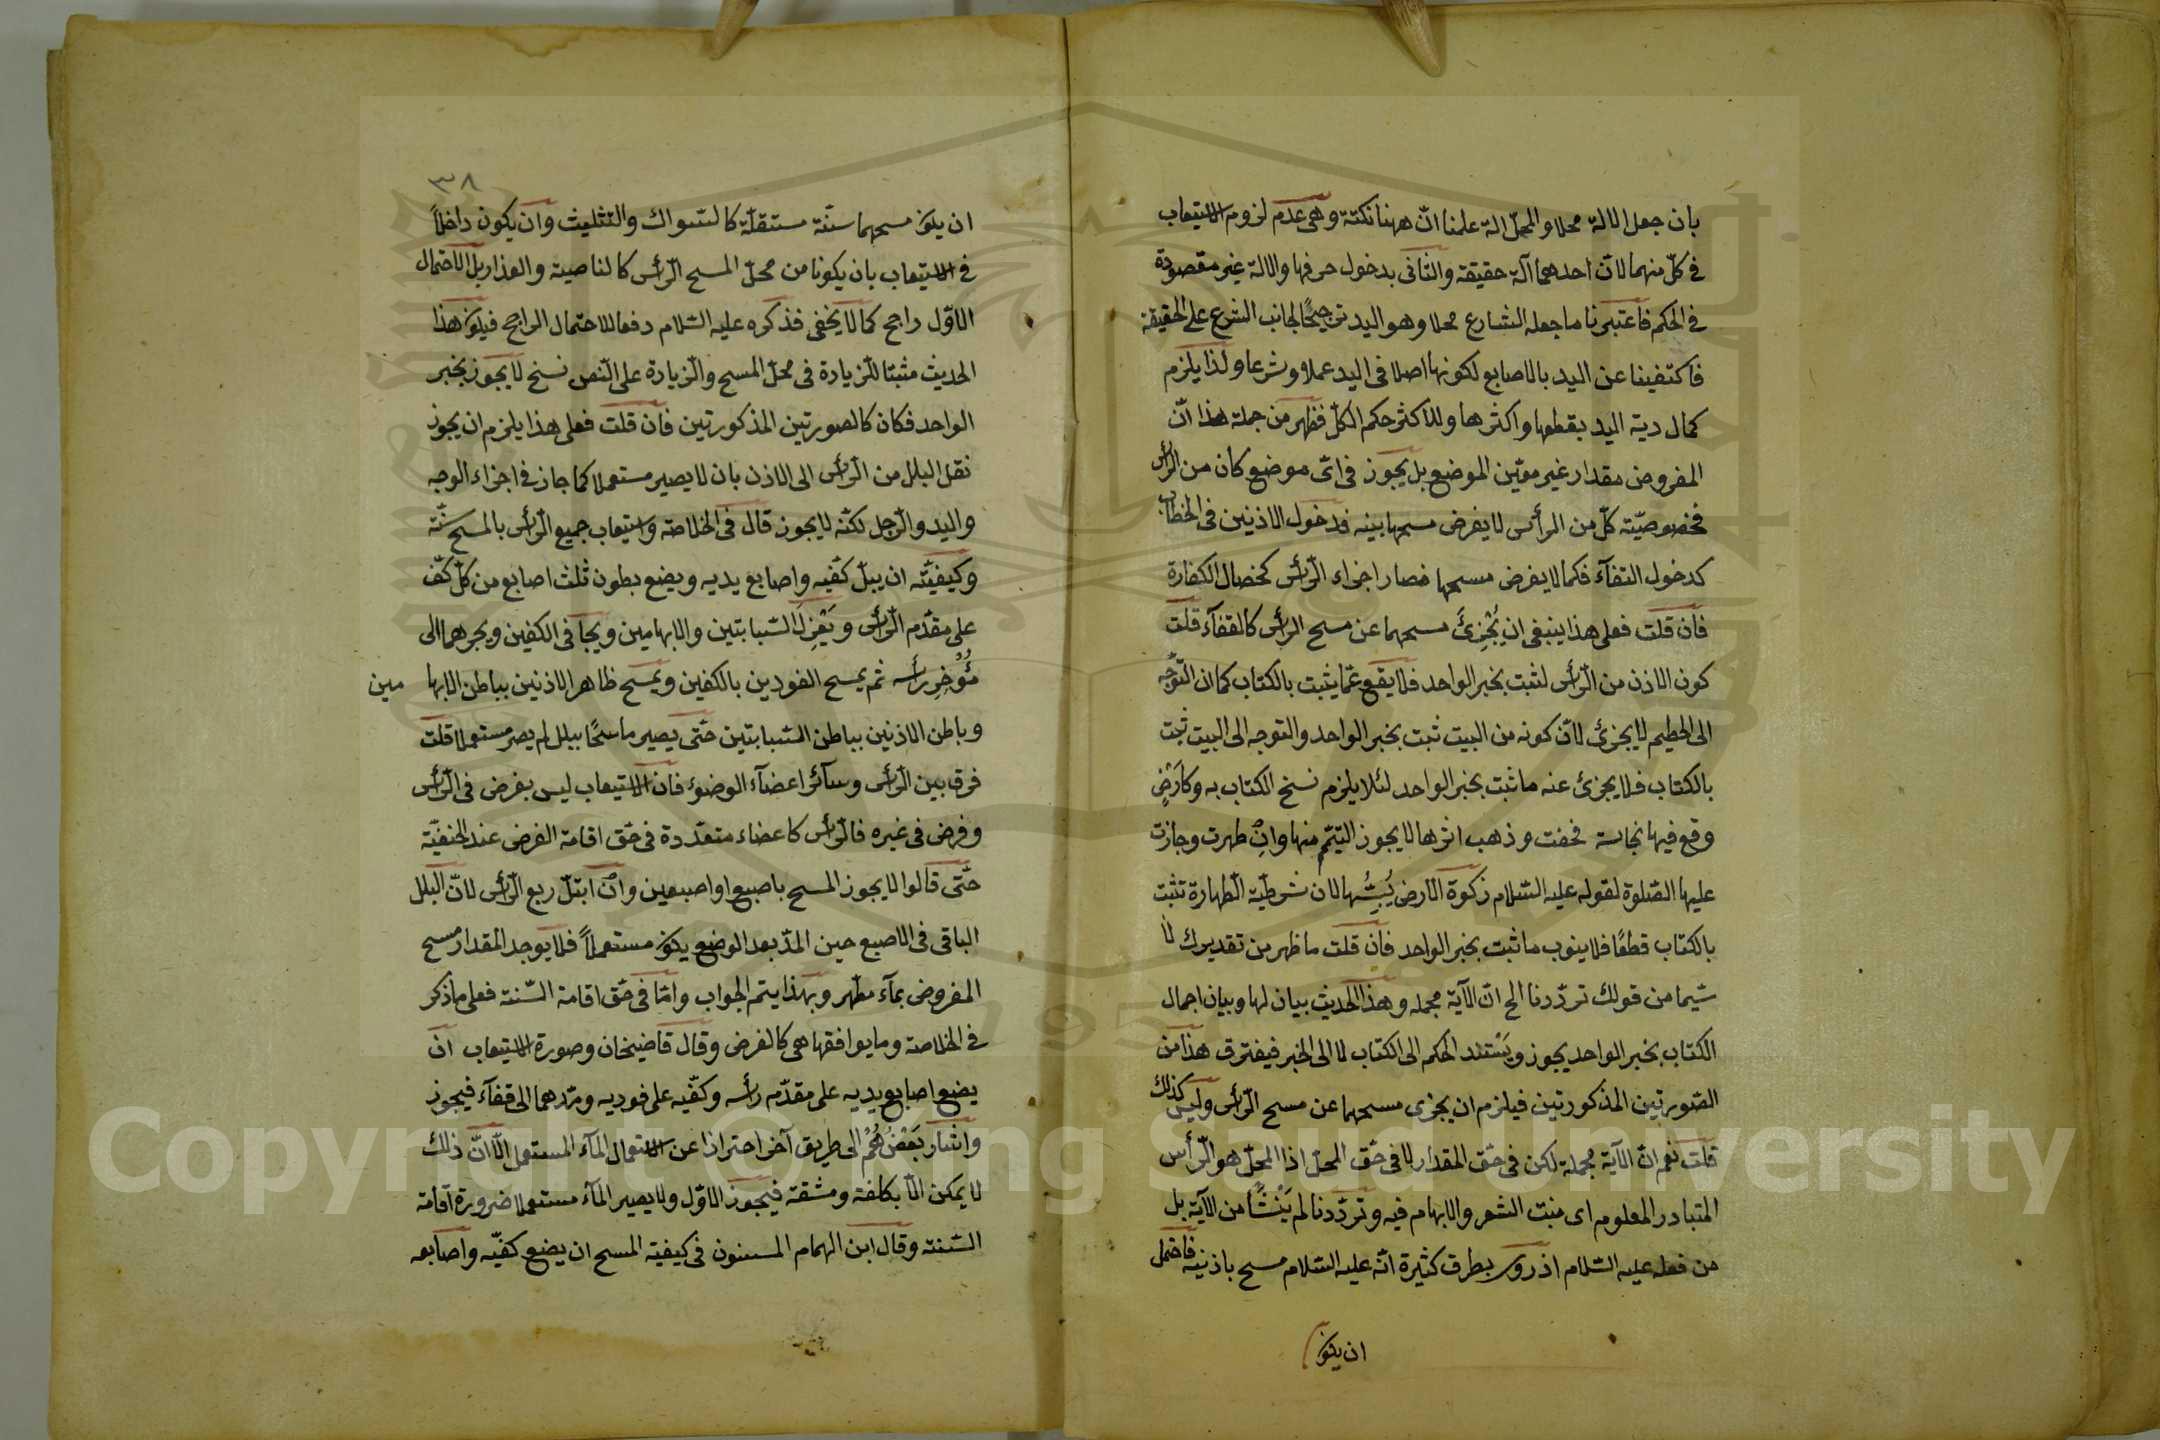 بان جعل الالة محلا والمحل الة علمنا انّ ههنا نكتة وهى عدم لزوم الاستيعاب
فى كلّ منهما لانّ احدهما آلة حقيقة والثانى بدخول حرفها والالة غير مقصودة
فى الحكم فاعتبرنا ما جعله الشارع محلا وهو اليد ترجيحًا لجانب الشرع على الحقيقة
فاكتفينا عن اليد بالاصابع لكونها اصلا فى اليد عملا وشرعا ولذا يلزم
كمال دية اليد بقطعها واكثرها وللاكثر حكم الكلّ فظهر من جملة هذا انّ
المفروض مقدار غير معيّن الموضع بل يجوز فى اىّ موضع كان من الرأس
فخصوصيّة كلّ من الرأس لا يفرض مسحها بينه فدخول الاذنين فى الخطاب
كدخول القفآء فكما لا يفرض مسحها فصار اجزاء الرّأس كخصال الكفارة
فان قلت فعلى هذا ينبغى ان يُجْزِئَ مسحهما عن مسح الرأس كالقفآء قلت
كون الاذن من الرّأس لثبت بخبر الواحد فلا يقع عمّا يثبت بالكتاب كما ان التوجّه
الى الحطيم لا يجزئ لانّ كونه من البيت ثبت بخبر الواحد والتوجه الى البيت ثبت
بالكتاب فلا يجزئ عنه ما ثبت بخبر الواحد لئلا يلزم نسخ الكتاب به وكارْضٍ
وقع فيها نجاسة فجفت وذهب اثرها لا يجوز التيمّم منها وانْ طهرت وجازت
عليها الصّلوة لقوله عليه السّلام زكوة الارض يُبسُها لان شرطيّة الطّهارة تثبت
بالكتاب قطعًا فلا ينوب ما ثبت بخبر الواحد فان قلت ما ظهر من تقديرك لا
سّيما من قولك تردّدنا الح انّ الآية مجمله وهذا الحديث بيان لها وبيان اجمال
الكتاب بخبر الواحد يجوز ويَسْتند الحكم الى الكتاب لا الى الخبر فيفترق هذا من
الصّورتين المذكورتين فيلزم ان يجزى مسحهما عن مسح الرّأس وليس كذلك
قلت نعم انّ الآية مجملة لكن فى حقّ المقدار لا فى حقّ المحلّ اذا المحلّ هو الرّأس
المتبادر المعلوم اى منبت الشعر والابهام فيه وتردّدنا لم يَنْشَأْ من الآية بل
من فعله عليه السّلام اذ روى بطرق كثيرة انّه عليه السّلام مسح باذنيه فاحتمل
ان يكون
٣٨
ان يكون مسحهما سنّة مستقلّة كالسّواك والتثليث وان يكون داخلاً
فى الاستيعاب بان يكونا من محلّ المسح الرّأس كالناصية والعذار بل الاحتمال
الاوّل راجح كما لا يخفى فذكره عليه السّلام دفعا للاحتمال الراجح فيكون هذا
الحديث مثبتا للزيادة فى محلّ المسح والزيادة على النّص نسخ لا يجوز بخبر
الواحد فكان كالصورتين المذكورتين فان قلت فعلى هذا يلزم ان يجوز
نقل البلل من الرّأس الى الاذن بان لا يصير مستعملا كما جاز فى اجزاء الوجه
واليد والرّجل لكنّه لا يجوز قال فى الخلاصة واستيعاب جميع الرّأس بالمسح سنّة
وكيفيّته ان يبلّ كفّيه واصابع يديه ويضع بطون ثلث اصابع من كلّ كفّ
على مقدّم الرّأس ويَعْزِلَ السّبابتين والابهامين ويجافى الكفين ويجرهما الى
مُؤَخّر رأسه ثم يمسح الفودين بالكفين ويمسح ظاهر الاذنين بباطن الابها مين
وباطن الاذنين بباطن السّبابتين حتّى يصير ماسحًا ببلل لم يصر مستعملا قلت
فرق بين الرّأس وسآئر اعضآء الوضوء فان الاستيعاب ليس بفرض فى الرّأس
وفرض فى غيره فالرّأس كاعضاء متعدّدة فى حقّ اقامة الفرض عند الحنفيّة
حتّى قالوا لا يجوز المسح باصبع او اصبعين وانْ ابتلّ ربع الرّأس لانّ البلل
الباقى فى الاصبع حين المدّ بعد الوضع يكون مستعملاً فلا يوجد المقدار مسح
المفروض بمآء مطهر وبهذا يتم الجواب وامّا فى حقّ اقامة السّنة فعلى ما ذكر
فى الخلاصة وما يوافقها هى كالفرض وقال قاضيخان وصورة الاستيعاب انّ
يضع اصابع يديه على مقدّم رأسه وكفّيه على فوديه ومدّهما الى قفآء فيجوز
واشار بَعْضُهُمْ الى طريق آخر احترازا عن استعمال المآء المستعمل الّا انّ ذلك
لا يمكن الّا بكلفة ومشقة فيجوز الاوّل ولا يصير المآء مستعملا ضرورة اقامة
السّنة وقال ابن الهمام المسنون فى كيفية المسح ان يضع كفّيه واصابعه
Copyright © King Saud University